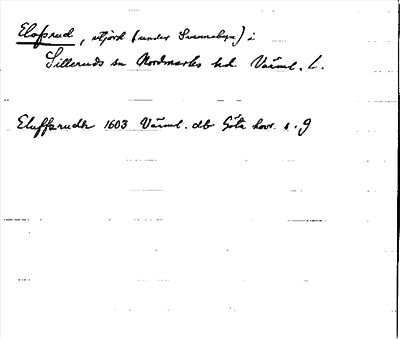 Elofsrud, utjord (under Svenneby) i
Silleruds sn Nordmarks hd Värml. L.
Eluffzrudh 1603 Värml. db Göta hovr. s. 9